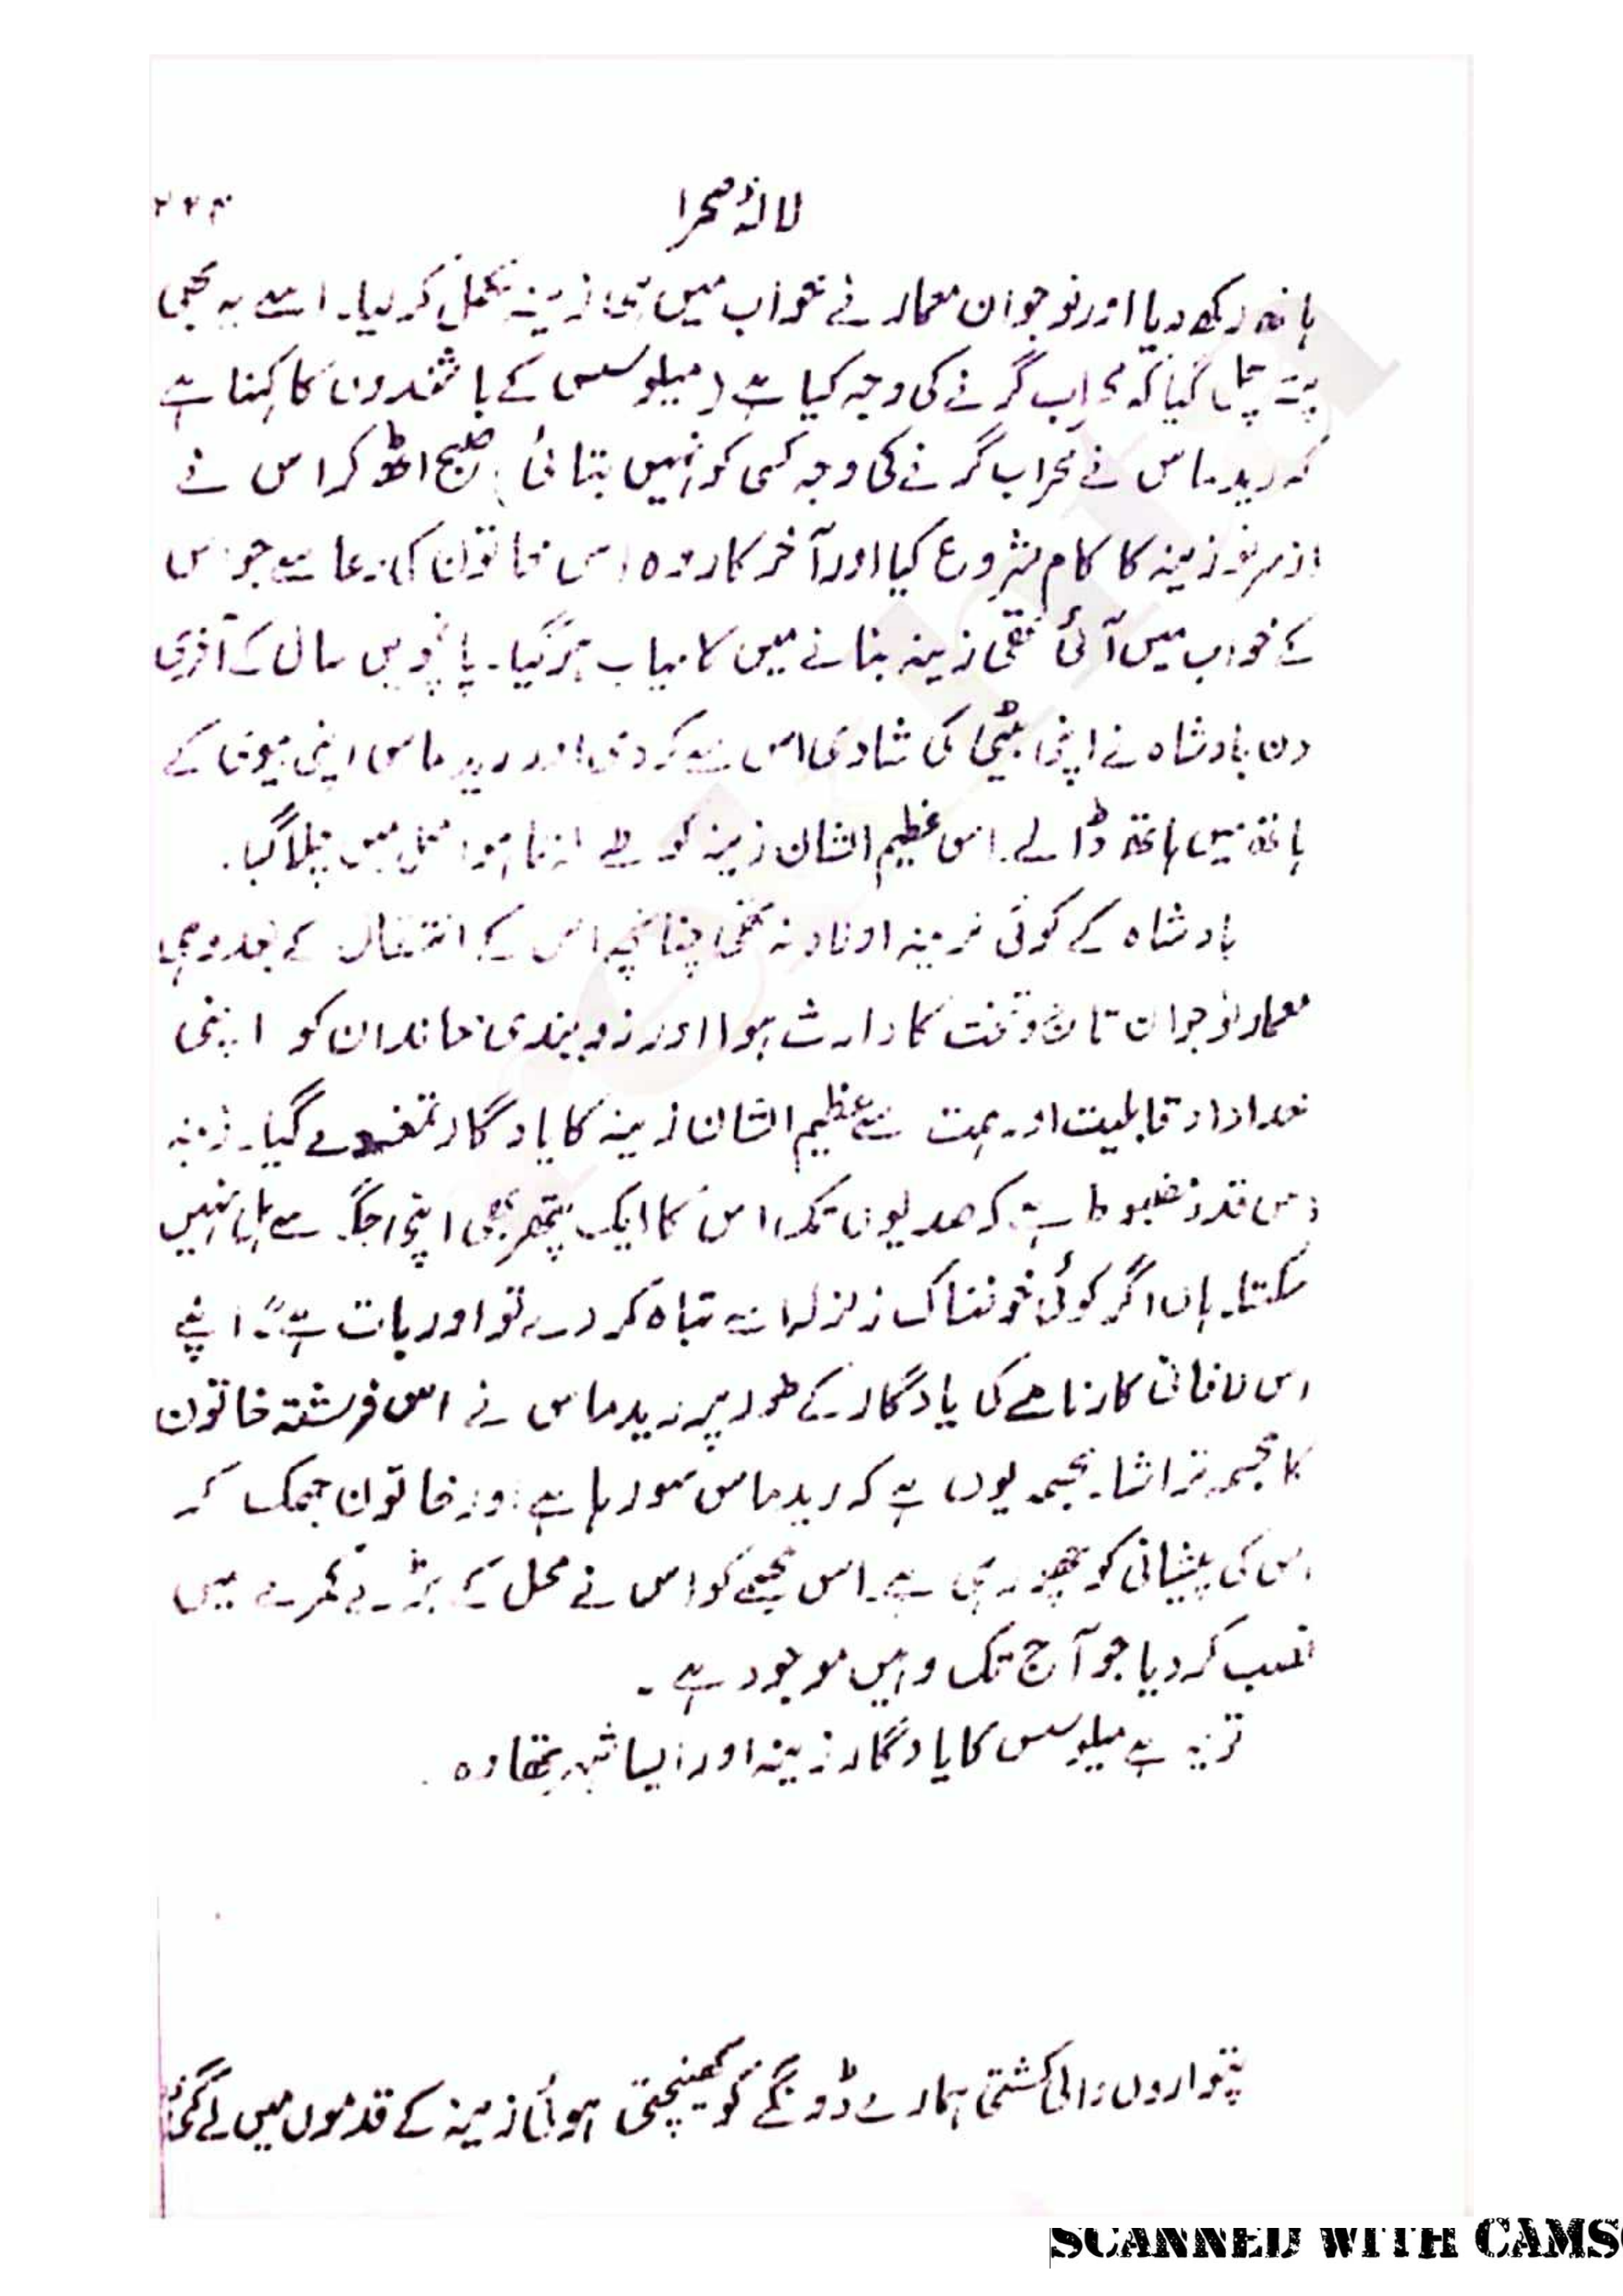 لالۂ صحرا
ہاتھ رکھ دیا اور نوجوان معمار نے خواب میں ہی زینہ مکمل کر لیا۔ اسے یہ بھی
پتہ چل گیا کہ محراب گرنے کی وجہ کیا ہے (میلوسس کے باشندوں کا کہنا ہے
کہ ریدماس نے محراب گرنے کی وجہ کسی کو نہیں بتائی) صبح اٹھ کر اس نے
ازسرنو زینہ کا کام شروع کیا اور آخر کار وہ اس خاتون کی دعا سے جو اس
کے خواب میں آئی تھی زینہ بنانے میں کامیاب ہو گیا۔ پانچویں سال کے آخری
دن بادشاہ نے اپنی بیٹی کی شادی اس سے کر دی اور ریدماس اپنی بیوی کے
ہاتھ میں ہاتھ ڈالے۔ اس عظیم الشان زینہ کو طے کرتا ہوا محل میں چلا گیا۔
بادشاہ کے کوئی نرینہ اولاد نہ تھی چنانچہ اس کے انتقال کے بعد وہی
معمار نوجوان تاج و تخت کا وارث ہوا اور زوبندی خاندان کو اپنی
خداداد قابلیت اور ہمت سے عظیم الشان زینہ کا یادگار تحفہ دے گیا۔ زینہ
اس قدر مضبوط ہے کہ صدیوں تک اس کا ایک پتھر بھی اپنی جگہ سے ہل نہیں
سکتا۔ ہاں اگر کوئی خوفناک زلزلہ اسے تباہ کر دے تو اور بات ہے"۔ اپنے
اس لافانی کارنامے کی یادگار کے طور پر ریدماس نے اس فرشتہ خاتون
کا مجسمہ تراشا۔ مجسمہ یوں ہے کہ ریدماس سو رہا ہے اور خاتون جھک کر
اس کی پیشانی کو چھو رہی ہے۔ اس مجسمے کو اس نے محل کے بڑے کمرے میں
نصب کر دیا جو آج تک وہیں موجود ہے۔
تو یہ ہے میلوسس کا یادگار زینہ اور ایسا شہر تھا وہ۔
پتواروں والی کشتی ہمارے ڈونگے کو کھینچتی ہوئی زینہ کے قدموں میں لے گئی
SCANNED WITH CAMS